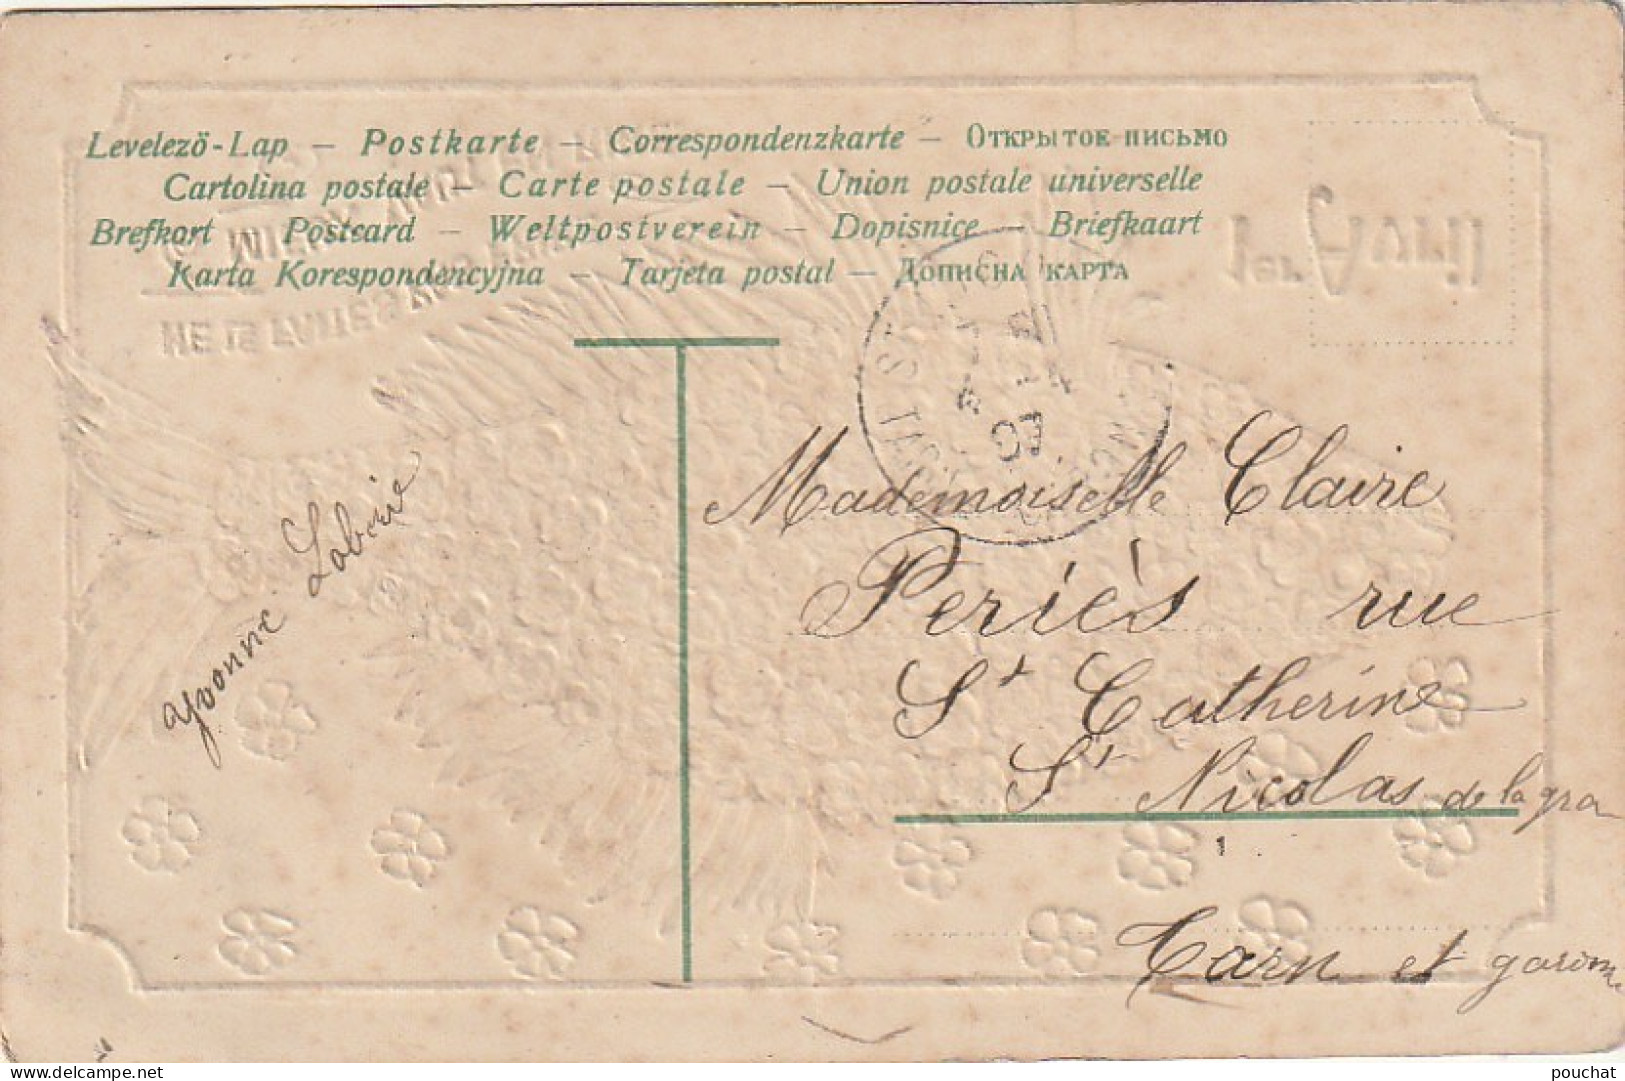 Levelezö-Lap – Postkarte – Correspondenzkarte – Открытое письмо
Cartolina postale – Carte postale – Union postale universelle
Brefkort – Postcard – Weltpostverein – Dopisnice – Briefkaart
Karta Korespondencyjna – Tarjeta postal – Дописна карта
1er Avril
NE LE FAITES PAS
07
Yvonne
Mademoiselle Claire
Periès rue
St Catherine
St Nicolas de la gra
1
Tarn et garonne
pouchat